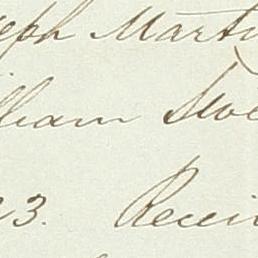 eph Martin
lliam Swe
23. Recei